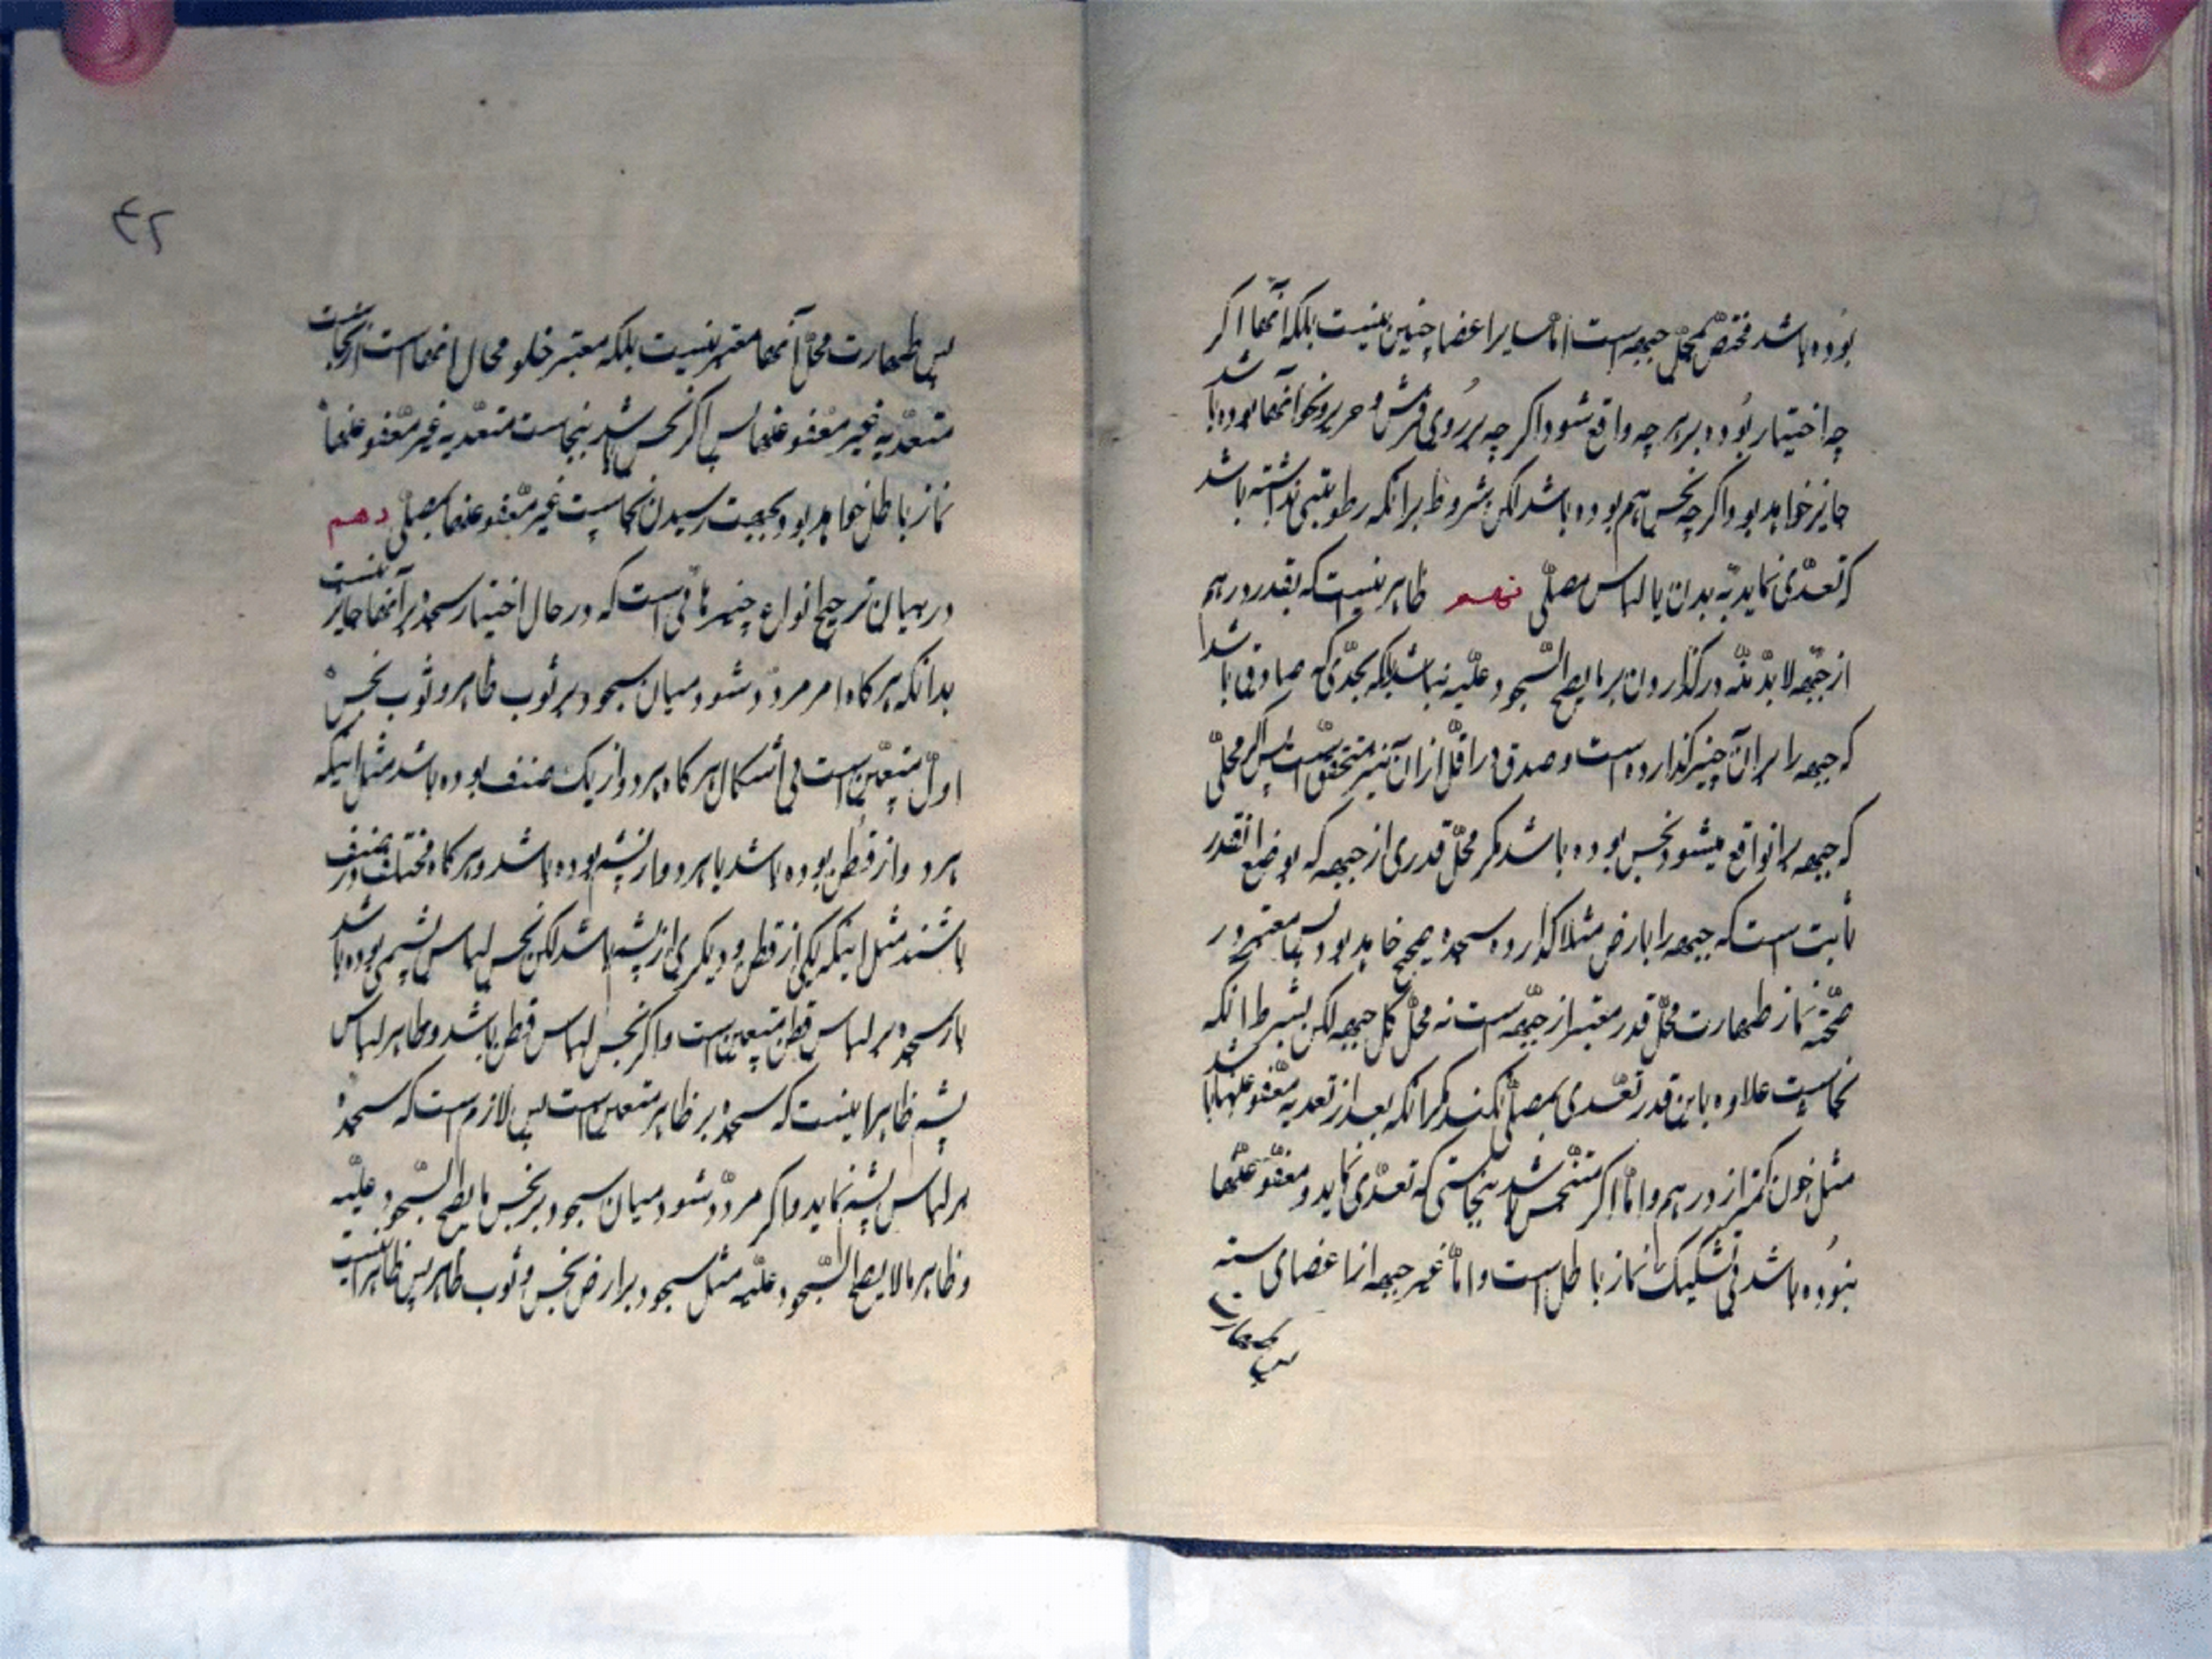 بوده باشد مختص بمحل جبهه است اما سایر اعضا چنین نیست بلکه آنها اگر
چه اختیار بوده بر هر چه واقع شود اگر چه بر روی فرش و حریر و نحو آنها بوده باشد
جایز خواهد بود اگر چه نجس هم بوده باشد لکن مشروط بر آنکه رطوبتی نداشته باشد
که تعدی نماید به بدن یا لباس مصلی نهم ظاهر نیست که بقدر درهم
از جبهه لابد منه در گذاردن بر ما یصح السجود علیه نباشد بلکه بحدی که صادق باشد
که جبهه را بر آن چیز گذارده است و صدق در اقل از آن نیز متحقق است پس اگر محلی
که جبهه بر آن واقع میشود نجس بوده باشد مگر محل قدری از جبهه که بوضع آنقدر
ثابت است که جبهه را بارض مثلا گذارده سجده صحیح خاهد بود پس معتبر در
صحة نماز طهارت محل قدر معتبر از جبهه است نه محل کل جبهه لکن بشرط آنکه
نجاست علاوه باین قدر تعدی بمصلی نکند مگر آنکه بعد از تعدیه معفو عنها باشد
مثل خون کمتر از درهم و اما اگر متنجس باشد بنجاستی که تعدی نماید و معفو عنها
نبوده باشد بی تشکیک نماز باطل است و اما غیر جبهه از اعضای ستة
پس طهارت
۴۲
پس طهارت محل آنها معتبر نیست بلکه معتبر خلو محال انها است از نجاست
متعدیه غیر معفو عنها پس اگر نجس باشد بنجاست متعدیه غیر معفو عنها
نماز باطل خواهد بود بجهت رسیدن نجاست غیر معفو عنها بمصلی دهم
در بیان ترجیح انواع چیزهائی است که در حال اختیار سجده بر آنها جایز نیست
بدانکه هر گاه امر مردد شود میان سجود بر ثوب طاهر و ثوب نجس
اول متعین است بی اشکال هر گاه هر دو از یک صنف بوده باشد مثل اینکه
هر دو از قطن بوده باشد یا هر دو از پشم بوده باشد و هر گاه مختلف در صنف
باشند مثل اینکه یکی از قطن و دیگری از پشم باشد لکن نجس لباس پشمی بوده باشد
باز سجده بر لباس قطن متعین است و اگر نجس لباس قطن باشد و طاهر لباس
پشم ظاهر اینست که سجده بر طاهر متعین است پس لازم است که سجده
بر لباس پشم نماید و اگر مردد شود میان سجود بر نجس ما یصح السجود علیه
و طاهر ما لا یصح السجود علیه مثل سجود بر ارض نجس و ثوب طاهر پس ظاهر اینست